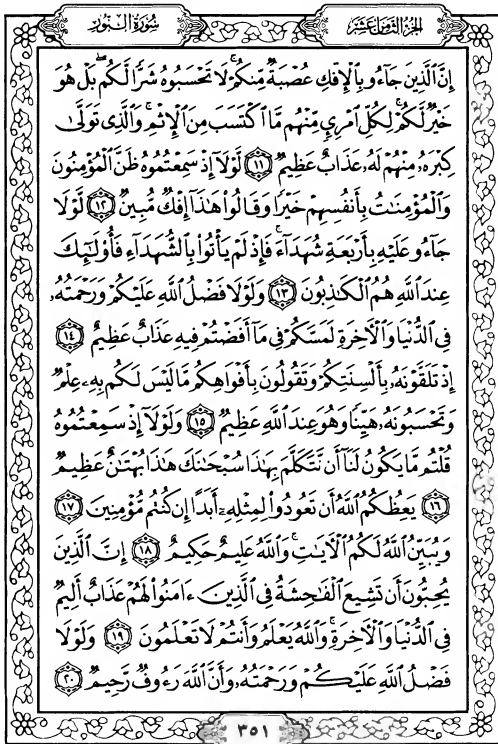 سُورَةُ النُّورِ
الجُزءُ الثَّامِنَ عَشَرَ
إِنَّ ٱلَّذِينَ جَآءُو بِٱلْإِفْكِ عُصْبَةٌ مِّنكُمْ ۚ لَا تَحْسَبُوهُ شَرًّا لَّكُم ۖ بَلْ هُوَ
خَيْرٌ لَّكُمْ ۚ لِكُلِّ ٱمْرِئٍ مِّنْهُم مَّا ٱكْتَسَبَ مِنَ ٱلْإِثْمِ ۚ وَٱلَّذِى تَوَلَّىٰ
كِبْرَهُۥ مِنْهُمْ لَهُۥ عَذَابٌ عَظِيمٌ ١١ لَّوْلَآ إِذْ سَمِعْتُمُوهُ ظَنَّ ٱلْمُؤْمِنُونَ
وَٱلْمُؤْمِنَٰتُ بِأَنفُسِهِمْ خَيْرًا وَقَالُوا۟ هَٰذَآ إِفْكٌ مُّبِينٌ ١٢ لَّوْلَا
جَآءُو عَلَيْهِ بِأَرْبَعَةِ شُهَدَآءَ ۚ فَإِذْ لَمْ يَأْتُوا۟ بِٱلشُّهَدَآءِ فَأُو۟لَٰٓئِكَ
عِندَ ٱللَّهِ هُمُ ٱلْكَٰذِبُونَ ١٣ وَلَوْلَا فَضْلُ ٱللَّهِ عَلَيْكُمْ وَرَحْمَتُهُۥ
فِى ٱلدُّنْيَا وَٱلْءَاخِرَةِ لَمَسَّكُمْ فِى مَآ أَفَضْتُمْ فِيهِ عَذَابٌ عَظِيمٌ ١٤
إِذْ تَلَقَّوْنَهُۥ بِأَلْسِنَتِكُمْ وَتَقُولُونَ بِأَفْوَاهِكُم مَّا لَيْسَ لَكُم بِهِۦ عِلْمٌ
وَتَحْسَبُونَهُۥ هَيِّنًا وَهُوَ عِندَ ٱللَّهِ عَظِيمٌ ١٥ وَلَوْلَآ إِذْ سَمِعْتُمُوهُ
قُلْتُم مَّا يَكُونُ لَنَآ أَن نَّتَكَلَّمَ بِهَٰذَا سُبْحَٰنَكَ هَٰذَا بُهْتَٰنٌ عَظِيمٌ
١٦ يَعِظُكُمُ ٱللَّهُ أَن تَعُودُوا۟ لِمِثْلِهِۦٓ أَبَدًا إِن كُنتُم مُّؤْمِنِينَ ١٧
وَيُبَيِّنُ ٱللَّهُ لَكُمُ ٱلْءَايَٰتِ ۚ وَٱللَّهُ عَلِيمٌ حَكِيمٌ ١٨ إِنَّ ٱلَّذِينَ
يُحِبُّونَ أَن تَشِيعَ ٱلْفَٰحِشَةُ فِى ٱلَّذِينَ ءَامَنُوا۟ لَهُمْ عَذَابٌ أَلِيمٌ
فِى ٱلدُّنْيَا وَٱلْءَاخِرَةِ ۚ وَٱللَّهُ يَعْلَمُ وَأَنتُمْ لَا تَعْلَمُونَ ١٩ وَلَوْلَا
فَضْلُ ٱللَّهِ عَلَيْكُمْ وَرَحْمَتُهُۥ وَأَنَّ ٱللَّهَ رَءُوفٌ رَّحِيمٌ ٢٠
٣٥١